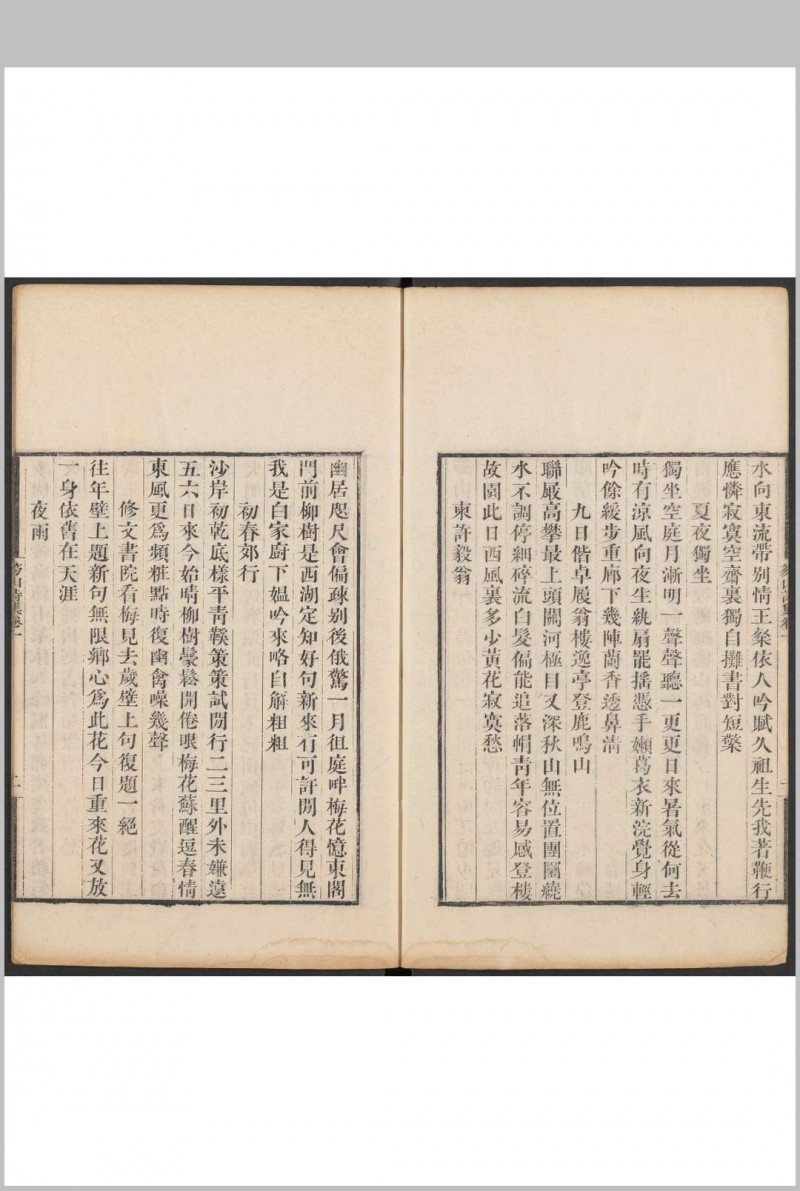 水向東流帶别情王粲依人吟賦久祖生先我若鞭行
應憐寂寞空齋裏獨自攤書對短檠
夏夜獨坐
獨坐空庭月漸明一聲聲聽一更更日來暑氣從何去
時有涼風向夜生紈扇罷搖憑手嬾葛衣新浣覺身輕
吟餘緩步重廊下幾陣蘭香透鼻淸
九日偕卓展翁樓逸亭登鹿鳴山
聯嚴高攀最上頭關河極目又深秋山無位置團圞繞
水不調停細碎流白髮偏能追落帽靑年容易感登樓
故園此日西風裏多少黃花寂寞愁
柬許毅翁
幽居咫尺會偏疎别後俄驚一月徂庭畔梅花憶東閣
門前柳樹是西湖定知好句新來有可許閒人得見無
我是白家廚下媼吟來略自解粗粗
初春郊行
沙岸初乾底樣平靑鞵策策試閒行二三里外未嫌遠
五六日來今始晴柳樹鬖鬆開倦眼梅花蘇醒逗春情
東風更爲頻粧點時復幽禽噪幾聲
修文書院看梅見去歲壁上句復題一絕
往年壁上題新句無限鄉心爲此花今日重來花又放
一身依舊在天涯
夜雨
山詩集卷一
二